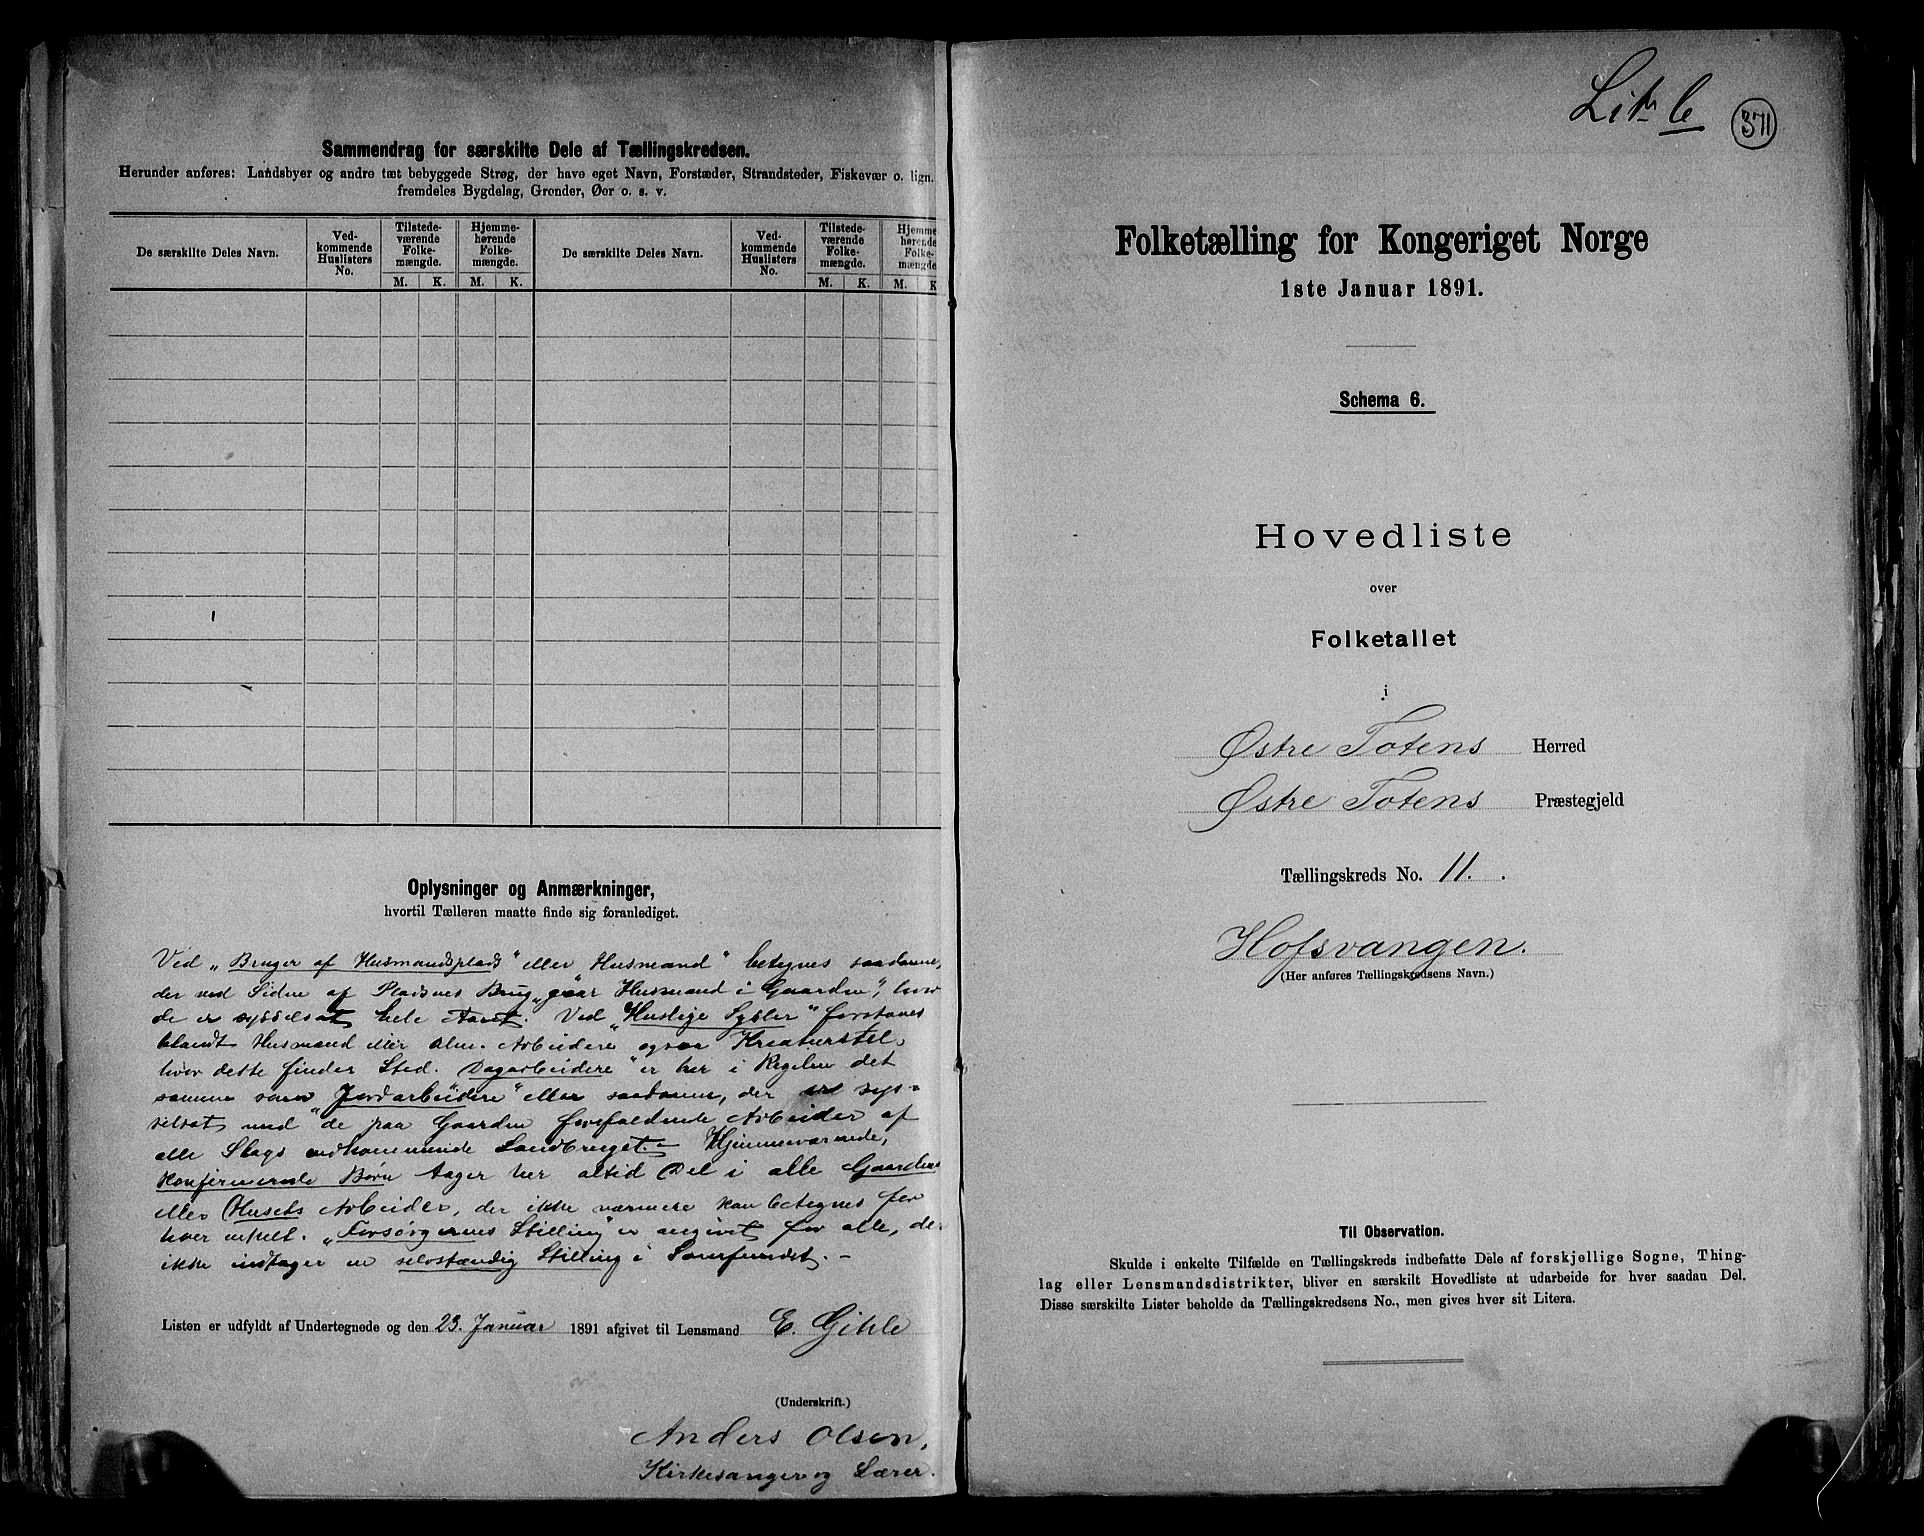 Sammendrag for særskilte Dele af Tællingskredsen.
Herunder anføres: Landsbyer og andre tæt bebyggede Strøg, der have eget Navn, Forstæder, Strandsteder, Fiskevær o. lign.
fremdeles Bygdelag, Grender, Øer o. s. v.
De særskilte Deles Navn.
Ved-
kommende
Huslisters
No.
Tilstede-
værende
Folke-
mængde.
Hjemme-
hørende
Folke-
mængde.
De særskilte Deles Navn.
Ved-
kommende
Huslisters
No.
Tilstede-
værende
Folke-
mængde.
Hjemme-
hørende
Folke-
mængde
M. K. M. K. M. K. M. K
Oplysninger og Anmærkninger,
hvortil Tælleren maatte finde sig foranlediget.
Ved „Bruger af Husmandsplads" eller „Husmand" betegnes saadanne,
der ved Siden af Pladsnes Brug „gaar Husmand i Gaarden", hvor
de er sysselsat hele Aaret. Ved „Huslige Sysler" forstaaes
blandt Husmænd eller alm. Arbeidere ogsaa Kreaturstel,
hvor dette finder Sted. Dagarbeidere" er her i Regelen det
samme som „Jordarbeidere" eller saadanne, der er sys=
selsat med de paa Gaarden forefaldende Arbeider af
alle Slags vedkommende Landbruget. - Hjemmeværende,
konfirmerede Børn tager her altid Del i alle Gaardens
eller Husets Arbeider, der ikke nærmere kan betegnes for
hver enkelt. „Forsørgernes Stilling" er angivet for alle, der
ikke indtager en selvstændig Stilling i Samfundet. -
Listen er udfyldt af Undertegnede og den 23. Januar 1891 afgivet til Lensmand E. Gihle
(Underskrift.)
Anders Olsen,
Kirkesanger og Lærer.
Litr. b
371
Folketælling for Kongeriget Norge
1ste Januar 1891.
Schema 6.
Hovedliste
over
Folketallet
i
Østre Totens Herred
Østre Totens Præstegjeld
Tællingskreds No. 11.
Hofsvangen.
(Her anføres Tællingskredsens Navn.)
Til Observation.
Skulde i enkelte Tilfælde en Tællingskreds indbefatte Dele af forskjellige Sogne, Thing-
lag eller Lensmandsdistrikter, bliver en særskilt Hovedliste at udarbeide for hver saadan Del.
Disse særskilte Lister beholde da Tællingskredsens No., men gives hver sit Litera.